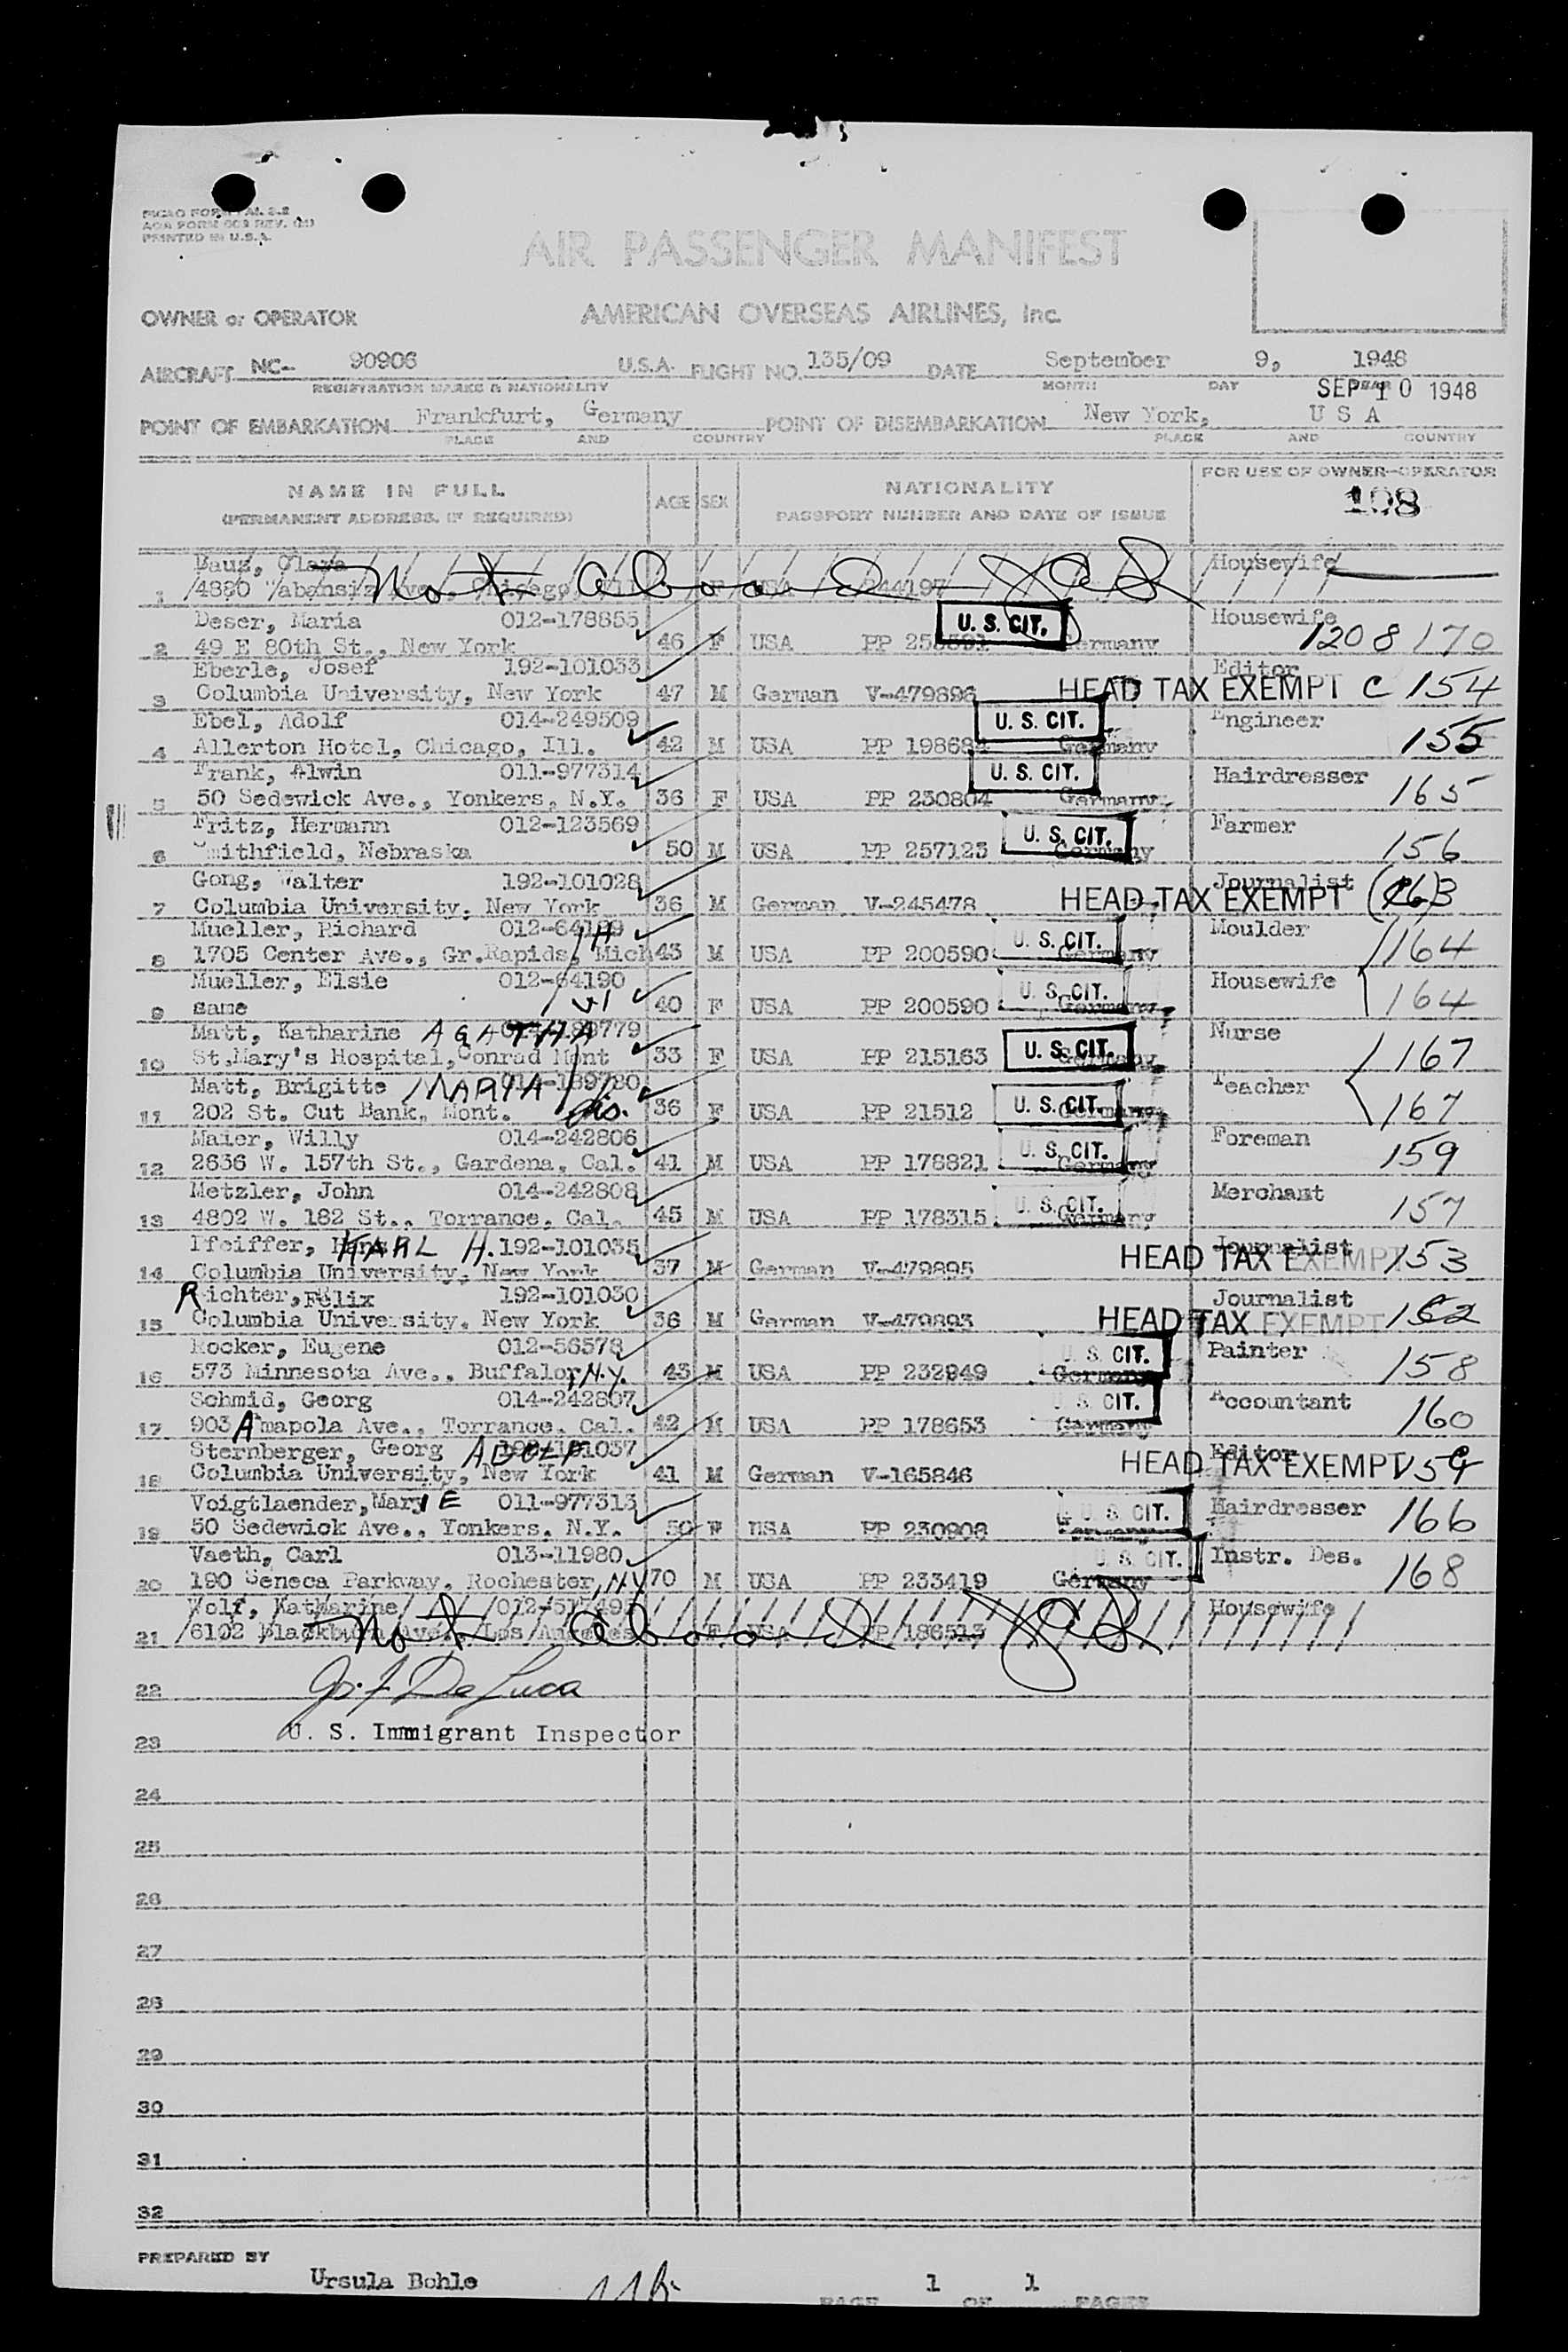 PICAO FORM FAL 2.2
AOA FORM 603 REV. (M)
PRINTED IN U.S.A.
AIR PASSENGER MANIFEST
OWNER or OPERATOR AMERICAN OVERSEAS AIRLINES, Inc.
AIRCRAFT NC- 90906 U.S.A. FLIGHT NO. 135/09 DATE September 9, 1948
REGISTRATION MARKS & NATIONALITY MONTH DAY YEAR
SEP 10 1948
POINT OF EMBARKATION Frankfurt, Germany POINT OF DISEMBARKATION New York, U S A
PLACE AND COUNTRY PLACE AND COUNTRY
NAME IN FULL AGE SEX NATIONALITY FOR USE OF OWNER-OPERATOR
(PERMANENT ADDRESS, IF REQUIRED) PASSPORT NUMBER AND DATE OF ISSUE 198
Clara Housewife
1 4880 Ave., Chicago, F USA 244197 Not aboard
Deser, Maria 012-178855 U. S. CIT. Housewife
2 49 E 80th St., New York 46 F USA PP Germany 1208 170
Eberle, Josef 192-101033 Editor
3 Columbia University, New York 47 M German V-479896 HEAD TAX EXEMPT C 154
Ebel, Adolf 014-249509 U. S. CIT. Engineer
4 Allerton Hotel, Chicago, Ill. 42 M USA PP Germany 155
Frank, Alwin 011-977314 U. S. CIT. Hairdresser
5 50 Sedewick Ave., Yonkers, N.Y. 36 F USA PP 230804 Germany 165
Fritz, Hermann 012-123569 U. S. CIT. Farmer
6 Smithfield, Nebraska 50 M USA PP 257123 Germany 156
Gong, Walter 192-101028 Journalist
7 Columbia University, New York 36 M German V-245478 HEAD TAX EXEMPT 163
Mueller, Richard H U. S. CIT. Moulder
8 1705 Center Ave., Gr.Rapids, Mich 43 M USA PP 200590 Germany 164
Mueller, Elsie 012-64190 U. S. CIT. Housewife
9 same 40 F USA PP 200590 Germany 164
Matt, Katharine AGATHA U. S. CIT. Nurse
10 St.Mary's Hospital, Conrad Mont 33 F USA PP 215163 Germany 167
Matt, Brigitte MARIA 014-189780 U. S. CIT. Teacher
11 202 St. Cut Bank, Mont. dis. 36 F USA PP 21512 Germany 167
Maier, Willy 014-242806 U. S. CIT. Foreman
12 2636 W. 157th St., Gardena, Cal. 41 M USA PP 178821 Germany 159
Metzler, John 014-242808 U. S. CIT. Merchant
13 4802 W. 182 St., Torrance, Cal. 45 M USA PP 178315 Germany 157
Pfeiffer, Hans KARL H. 192-101035 Journalist
14 Columbia University, New York 37 M German V-479895 HEAD TAX EXEMPT 153
Richter, Felix 192-101030 Journalist
15 Columbia University, New York 36 M German V-479893 HEAD TAX EXEMPT 152
Rocker, Eugene 012-56578 U. S. CIT. Painter
16 573 Minnesota Ave., Buffalo, N.Y. 43 M USA PP 232949 Germany 158
Schmid, Georg 014-242807 U. S. CIT. Accountant
17 903 Amapola Ave., Torrance, Cal. 42 M USA PP 178653 Germany 160
Sternberger, Georg ADOLF Editor
18 Columbia University, New York 41 M German V-165846 HEAD TAX EXEMPT
Voigtlaender, MarIE 011-977313 U. S. CIT. Hairdresser
19 50 Sedewick Ave., Yonkers, N.Y. 50 F USA PP 230908 Germany 166
Vaeth, Carl 013-11980 U. S. CIT. Instr. Des.
20 190 Seneca Parkway, Rochester, N.Y 70 M USA PP 233419 Germany 168
Wolf, Katharine Housewife
21 6102 Blackburn Ave., Los Angeles F USA PP 186513 Not aboard
22 Jos. F. De Luca
23 U. S. Immigrant Inspector
24
25
26
27
28
29
30
31
32
PREPARED BY
Ursula Bohle 1 1
PAGE OF PAGES